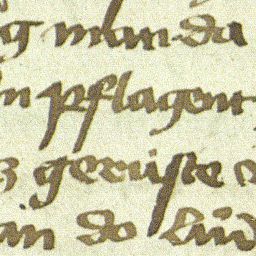 g man da
n pflagent
z gerüste
in do lüd